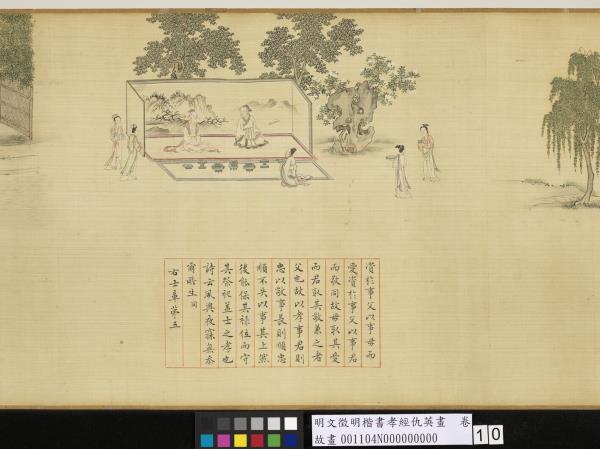 資於事父以事母而
愛資於事父以事君
而敬同故母取其愛
而君取其敬兼之者
父也故以孝事君則
忠以敬事長則順忠
順不失以事其上然
後能保其祿位而守
其祭祀蓋士之孝也
詩云夙興夜寐無忝
爾所生 同
右士章第五
明文徵明楷書孝經仇英畫 卷
故畫 001104N000000000
10